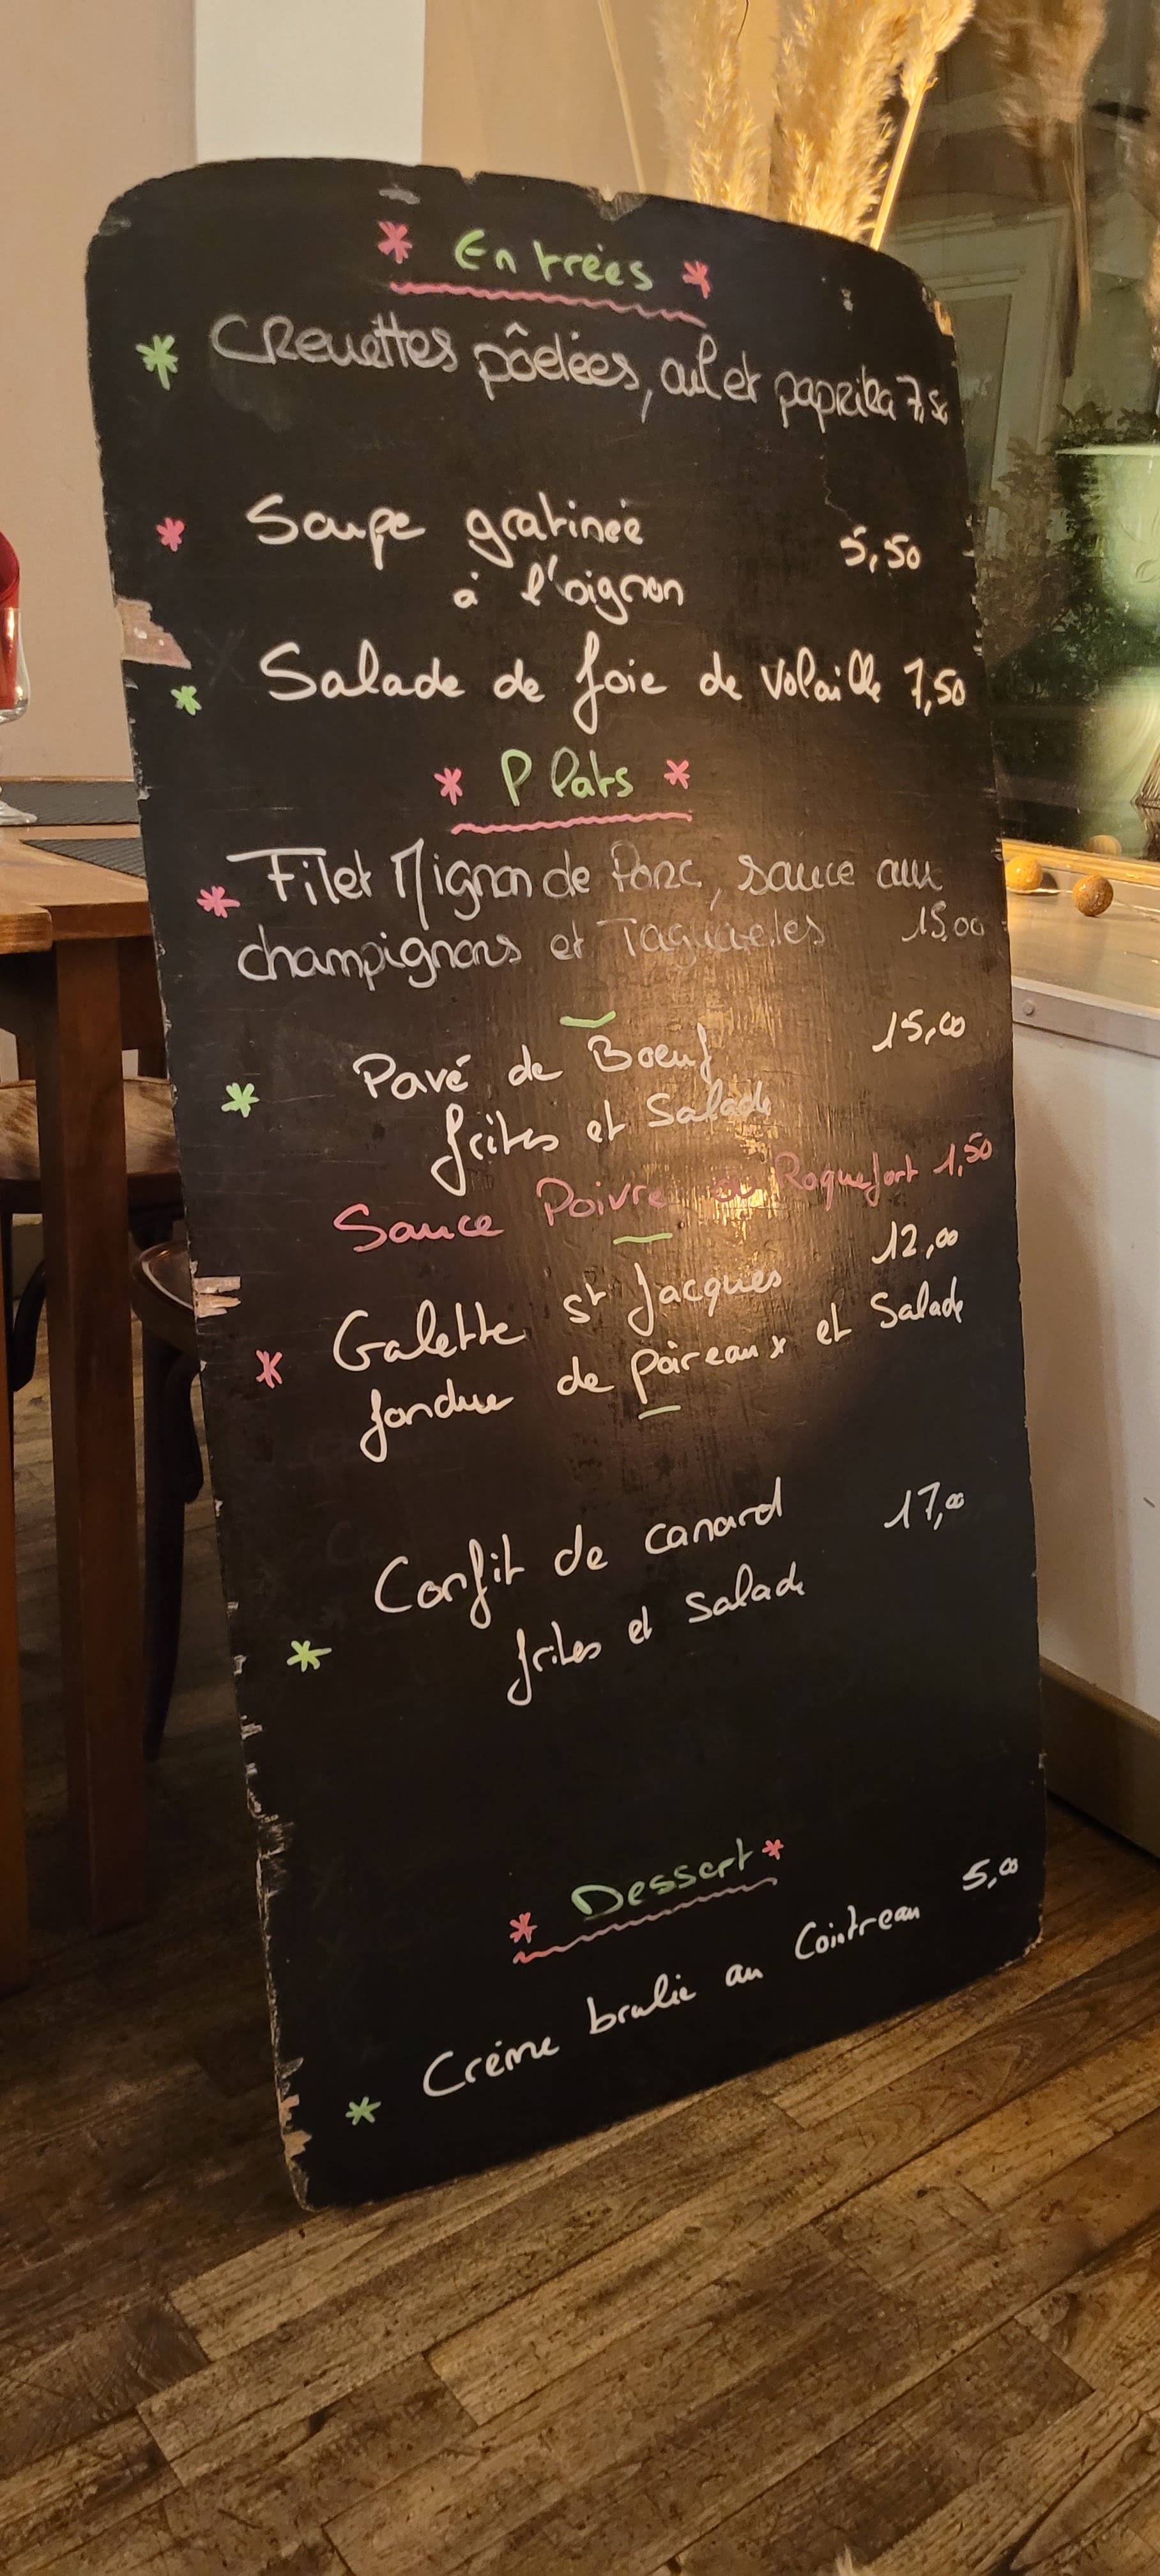 * Entrées *
* Crevettes pôelées, ail et paprika 7,50
* Soupe gratinée 5,50
à l'oignon
* Salade de foie de volaille 7,50
* Plats *
* Filet Mignon de Porc, sauce aux
champignons et Tagliatelles 15,00
Pavé de Boeuf 15,00
* frites et Salade
Sauce Poivre ou Roquefort 1,50
* Galette St Jacques 12,00
fondue de poireaux et Salade
Confit de canard 17,00
* frites et Salade
* Dessert *
* Crème brulée au Cointreau 5,00